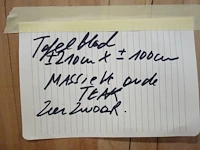 Tafelblad
± 210cm x ± 100cm
MASSIEF oude
TEAK
Zeer zwaar.